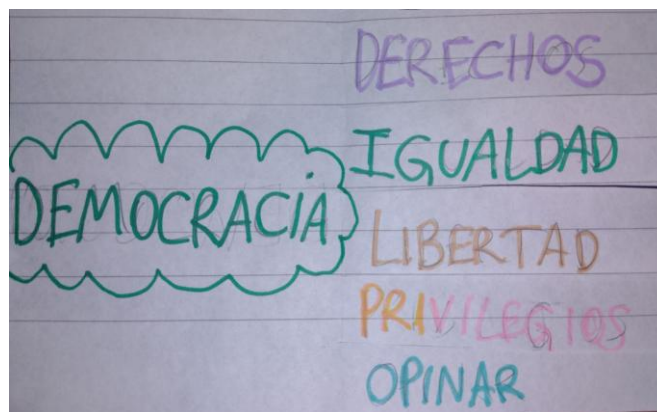 DEMOCRACIA
DERECHOS
IGUALDAD
LIBERTAD
PRIVILEGIOS
OPINAR